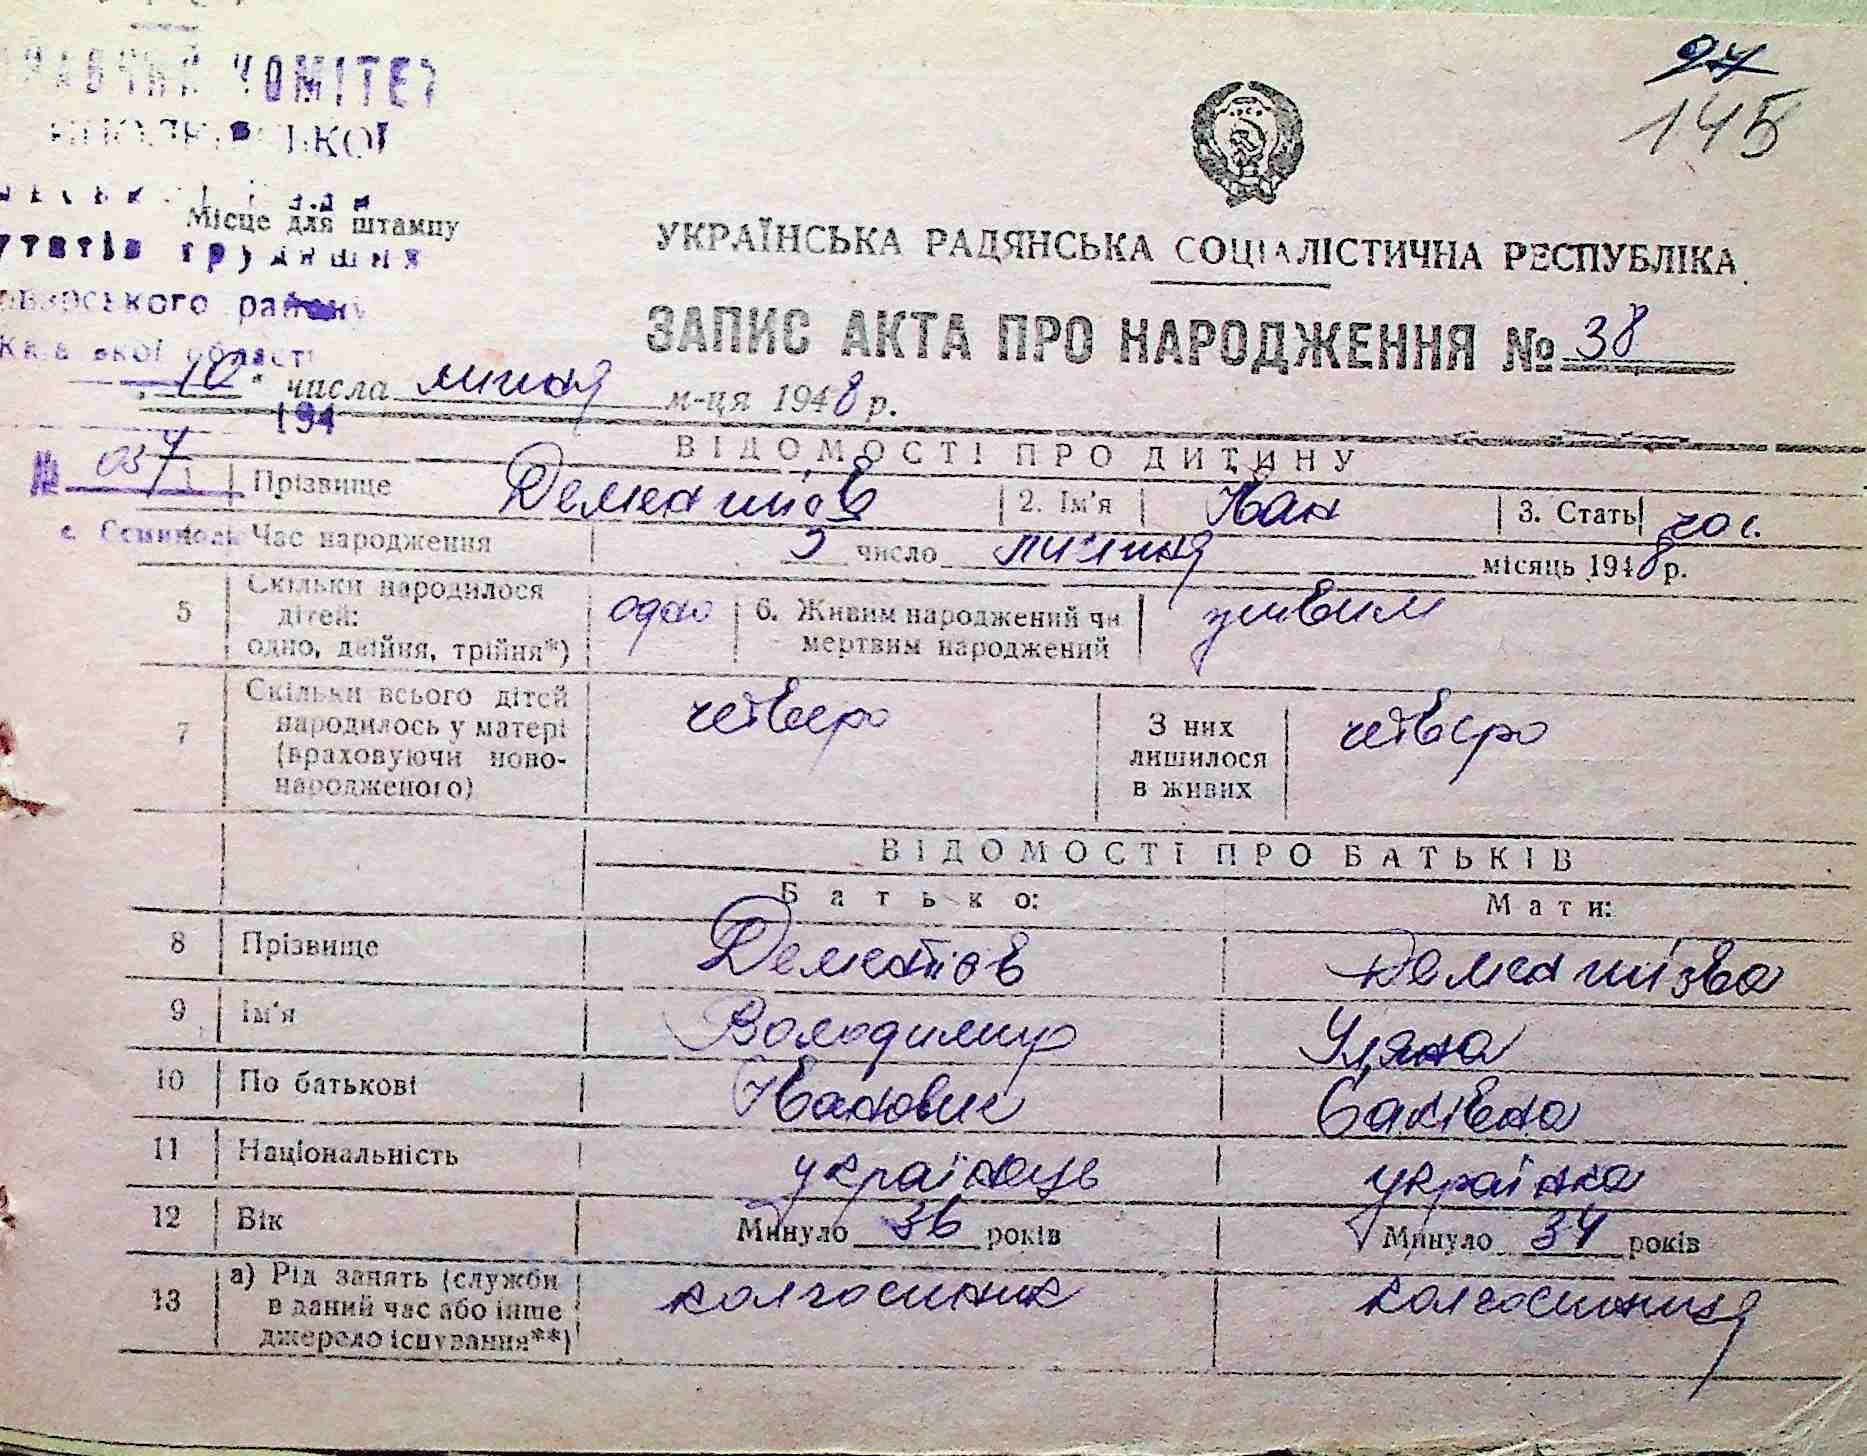 97
145
КОМІТЕТ
Місце для штампу
УКРАЇНСЬКА РАДЯНСЬКА СОЦІАЛІСТИЧНА РЕСПУБЛІКА
району
області
ЗАПИС АКТА ПРО НАРОДЖЕННЯ № 38
"10" числа липня м-ця 1948 р.
194
№ 037
ВІДОМОСТІ ПРО ДИТИНУ
1 Прізвище 2. Ім'я Іван 3. Стать чол.
Час народження 5 число липня місяць 1948 р.
5 Скільки народилося дітей: одно, двійня, трійня*) одно 6. Живим народжений чи мертвим народжений живим
7 Скільки всього дітей народилось у матері (враховуючи новонародженого) четверо З них лишилося в живих четверо
ВІДОМОСТІ ПРО БАТЬКІВ
Батько: Мати:
8 Прізвище
9 Ім'я Володимир Уляна
10 По батькові Іванович
11 Національність українець українка
12 Вік Минуло 36 років Минуло 34 років
13 а) Рід занять (служби в даний час або інше джерело існування**) колгоспник колгоспниця